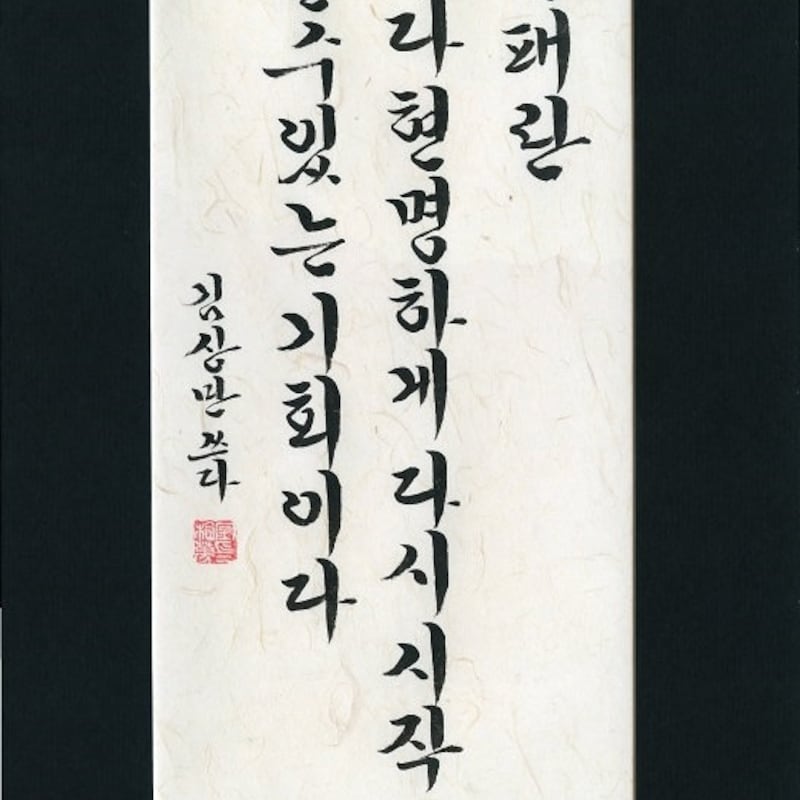 패란
다 현명하게 다시 시작
수 있는 기회이다
김상만 쓰다